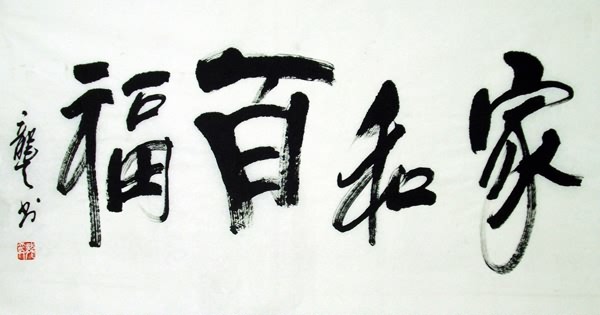 家和百福